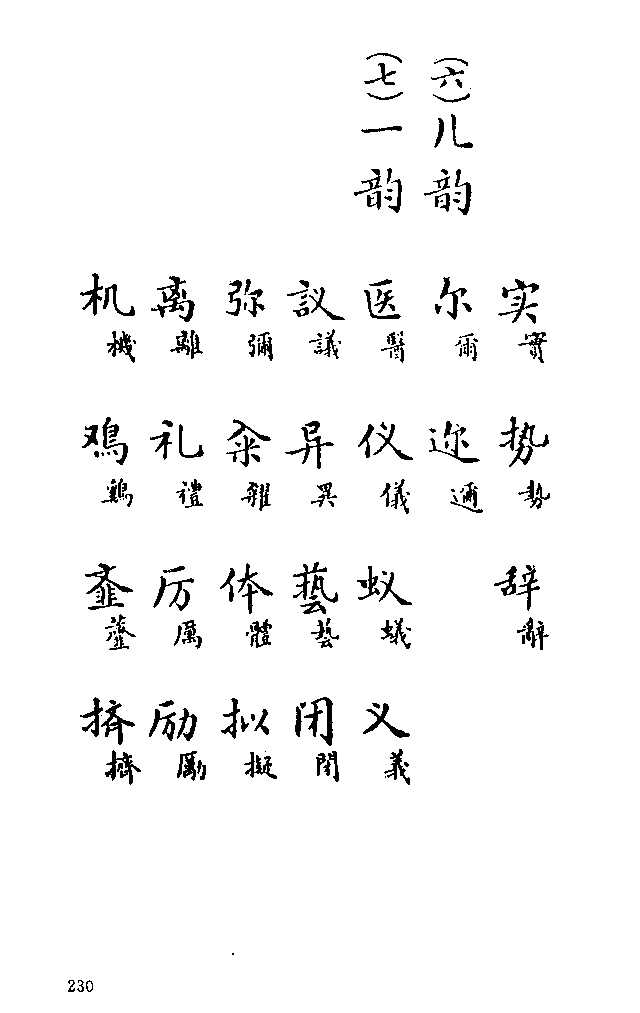 实實 势勢 辞辭
(六)儿韵 尔爾 迩邇
(七)一韵 医醫 仪儀 蚁蟻 义義
议議 异異 藝 闭閉
弥彌 籴糴 体體 拟擬
离離 礼禮 厉厲 励勵
机機 鸡鷄 齑虀 挤擠
230